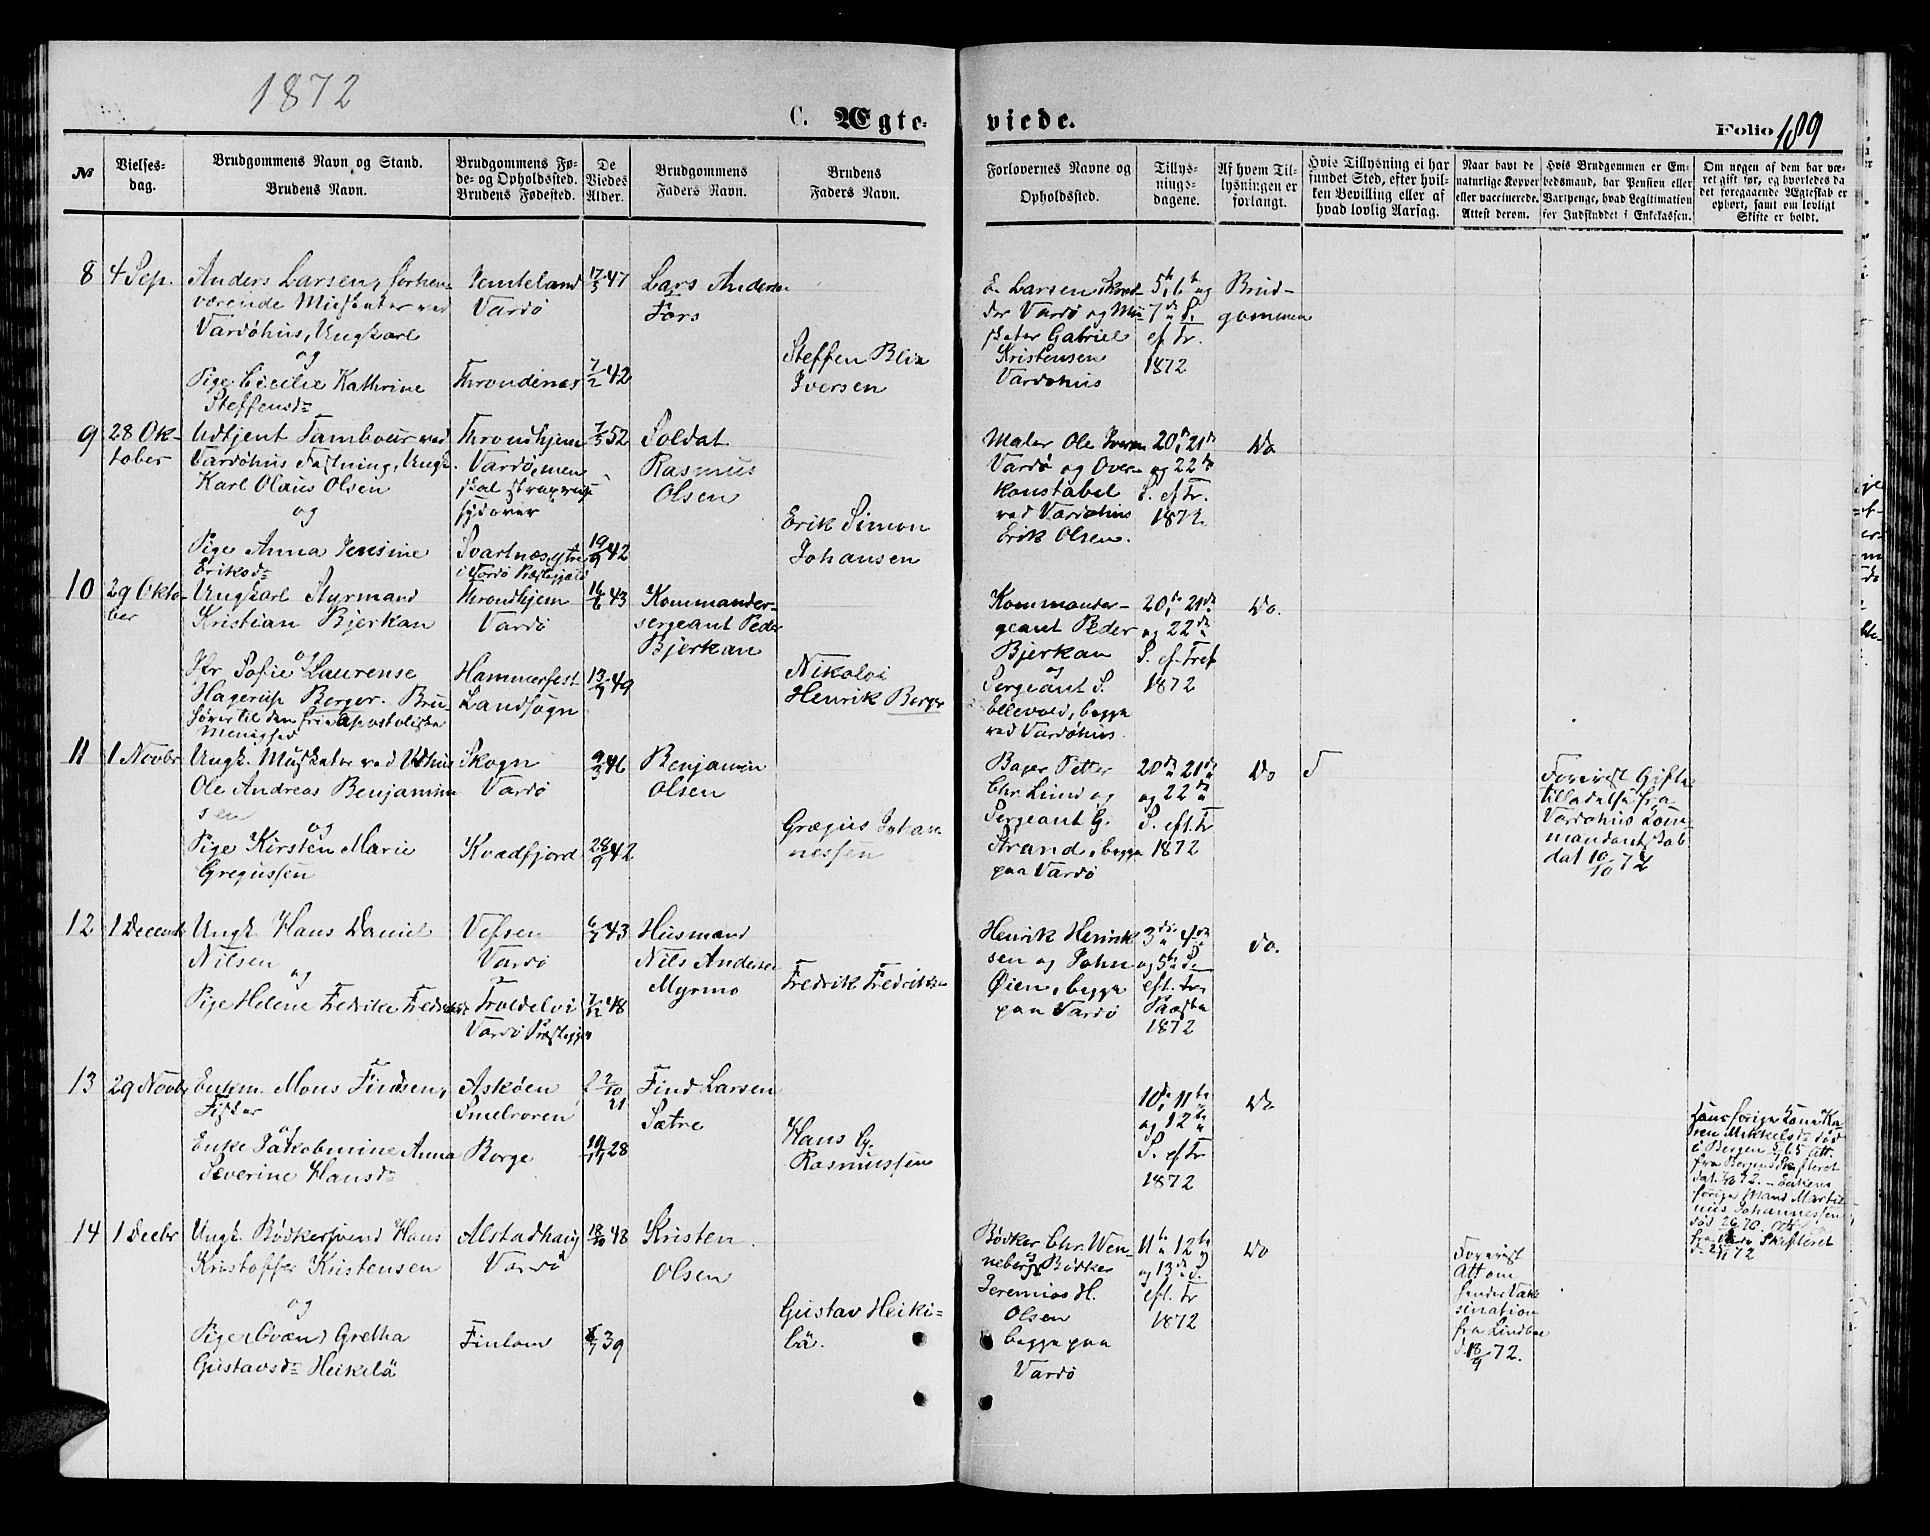 1872
C. Ægte-
viede.
Folio 189
№
Vielses-
dag.
Brudgommens Navn og Stand.
Brudens Navn.
Brudgommens Fø-
de- og Opholdssted.
Brudens Fødested.
De
Viedes
Alder.
Brudgommens
Faders Navn.
Brudens
Faders Navn.
Forlovernes Navne og
Opholdssted.
Tillys-
nings-
dagene.
Af hvem Til-
lysningen er
forlangt.
Hvis Tillysning ei har
fundet Sted, efter hvil-
ken Bevilling eller af
hvad lovlig Aarsag.
Naar havt de
naturlige Kopper
eller vaccinerede.
Attest derom.
Hvis Brudgommen er Em-
bedsmand, har Pension eller
Vartpenge, hvad Legitimation
for Indskuddet i Enkekassen.
Om nogen af dem har væ-
ret gift før, og hvorledes da
det foregaaende Ægteskab er
ophørt, samt om lovligt
Skifte er holdt.
8
4 Sep.
Anders Larsen, forhen-
værende Musketer ved
Vardöhus, Ungkarl
og
Pige Cicilie Kathrine
Steffensd
Jemteland
Vardö
Throndenæs
17/3 47
7/2 42
Lars Andersen
Fors
Steffen Blix
Iversen
E. Larsen
Vardö og Mu-
sketer Gabriel
Kristensen
Vardöhus
5te, 6te og
7de S.
ef Tr.
1872
Brud-
gommen
9
28 Ok-
tober
Udtjent Tambour ved
Vardöhus Fæstning, Ungk.
Karl Olaus Olsen
og
Pige Anna Jensine
Eriksd
Throndhjem
Vardö, men
skal
sydover
Svartnæs ytre
i Vardö Præstegjeld
7/3 52
19/9 42
Soldat
Rasmus
Olsen
Erik Simon
Johansen
Maler Ole Iversen
Vardö og Over-
konstabel
ved Vardöhus
Erik Olsen.
20de, 21de
og 22de
S. ef Tr.
1872
Do
10
29 Okto-
ber
Ungkarl Styrmand
Kristian Bjerkan
og
Sofie Laurense
Hagerup Berger. Bru-
den
til den frie apostoliske
Menighed
Throndhjem
Vardö
Hammerfest
Landsogn
16/6 43
13/7 49
Kommander-
sergeant Peder
Bjerkan
Nikolai
Henrik Berger
Kommander-
geant Peder
Bjerkan
og
Sergeant S.
Ellevold, begge
ved Vardöhus.
20de, 21de
og 22de
S. ef Tref
1872
Do.
11
1 Novbr
Ungk. Musketer ved Vdhus
Ole Andreas Benjamin
sen
og
Pige Kirsten Marie
Gregussen
Skogn
Vardö
Kvædfjord
9/3 46
28/9 42
Benjamin
Olsen
Grægus Johan-
nessen
Bager Petter
Chr. Lund og
Sergeant G.
Strand, begge
paa Vardö
20de 21de
og 22de
S. eft. Tr
1872
Do
Forevist Gifte
tilladelse fra
Vardöhus Kom-
mandantskab
dat 10/10 72
12
1 Decemb
Ungk. Hans Daniel
Nilsen
og
Pige Helene Fredrike Fredriksd
Vefsen
Vardö
Troldelvi
Vardö Præstegjeld
6/7 43
7/12 48
Husmand
Nils Andersen
Myrmo
Fredrik Fredriksen
Henrik Henrik
sen og John
Øien, begge
paa Vardö
3die 4de
og 5te S.
eft. Tr
1872
do.
13
29 Novbr
Enkem. Mons Findsen,
Fisker
og
Enke Jakobmine Anna
Severine Hansd
Askøen
Smelroren
Borge
2/10
21
19/11 28
Find Larsen
Sætre
Hans Cg.
Rasmussen
10de, 11te
og 12te
S. ef Tr
1872
Do
Hans forige Kone Ka-
ren Mikkelsd død
i Bergen 65 Att.
fra Bergens Skifteret
Enkens
forige Mand Martin-
nus Johannessen
død
fra Vardø Skifteret
14
1 Decbr
Ungk. Bødkersvend Hans
Kristoffer Kristensen
og
Pige, Qvæn, Gretha
Gustavsd Heikelä
Alstadhaug
Vardö
Finland
18/10 48
6/7 39
Kristen
Olsen
Gustav Heiki-
lä.
Bødker Chr. Wen-
neberg, Bødker
Jeremias H.
Olsen
begge paa
Vardö
11te 12te
og 13de S.
eft. Tr
1872
Do
Forevist
Att om
hendes Vak
sination
fra Lindboe
d. 18/9 72.